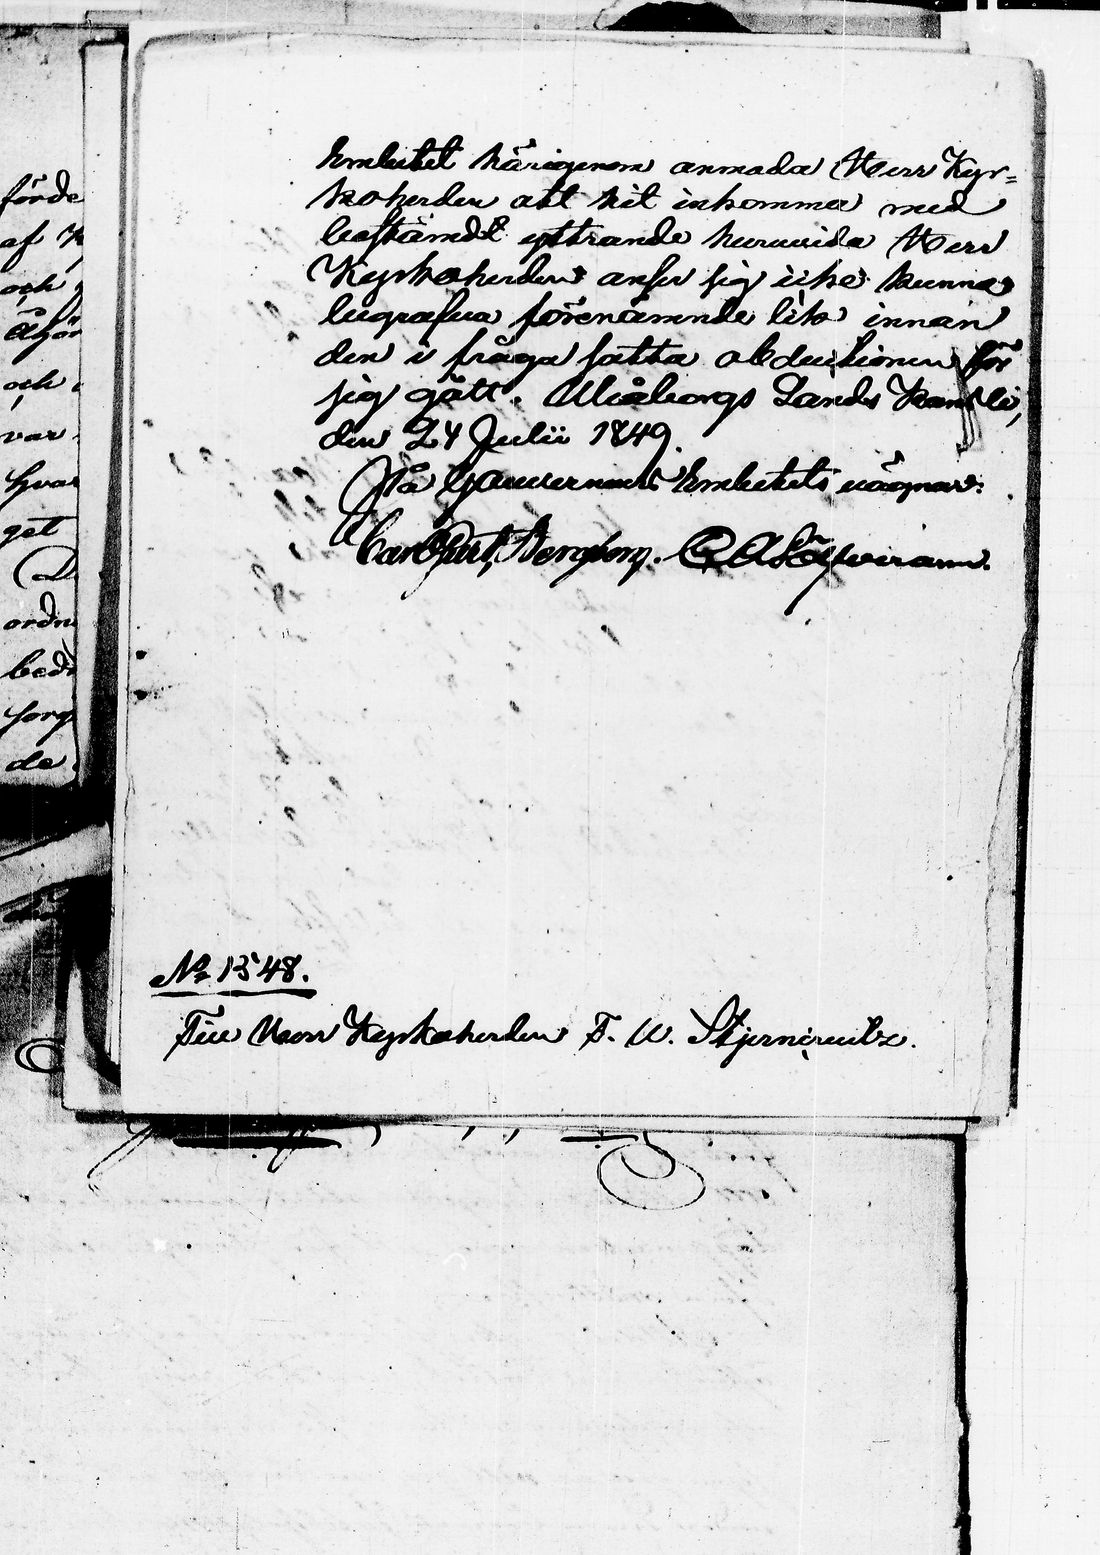 förde
af
och
Åhör
och
var
hvar
get
ordn
bed
sorg
de
Embetet härigenom anmoda Herr Kyr=
koherden att hit inkomma med
bestämdt yttrande huruvida Herr
Kyrkoherden anser sig icke kunna
begrafva förenämnde lik innan
den i fråga satta obductionen för
sig gått. Uleåborgs Lands Kansli,
den 24 Julii 1849.
På Gouvernements Embetets vägnar:
Carl Bergbom.
No 1548.
Till Herr Kyrkoherden F. W. Stjerncreutz.